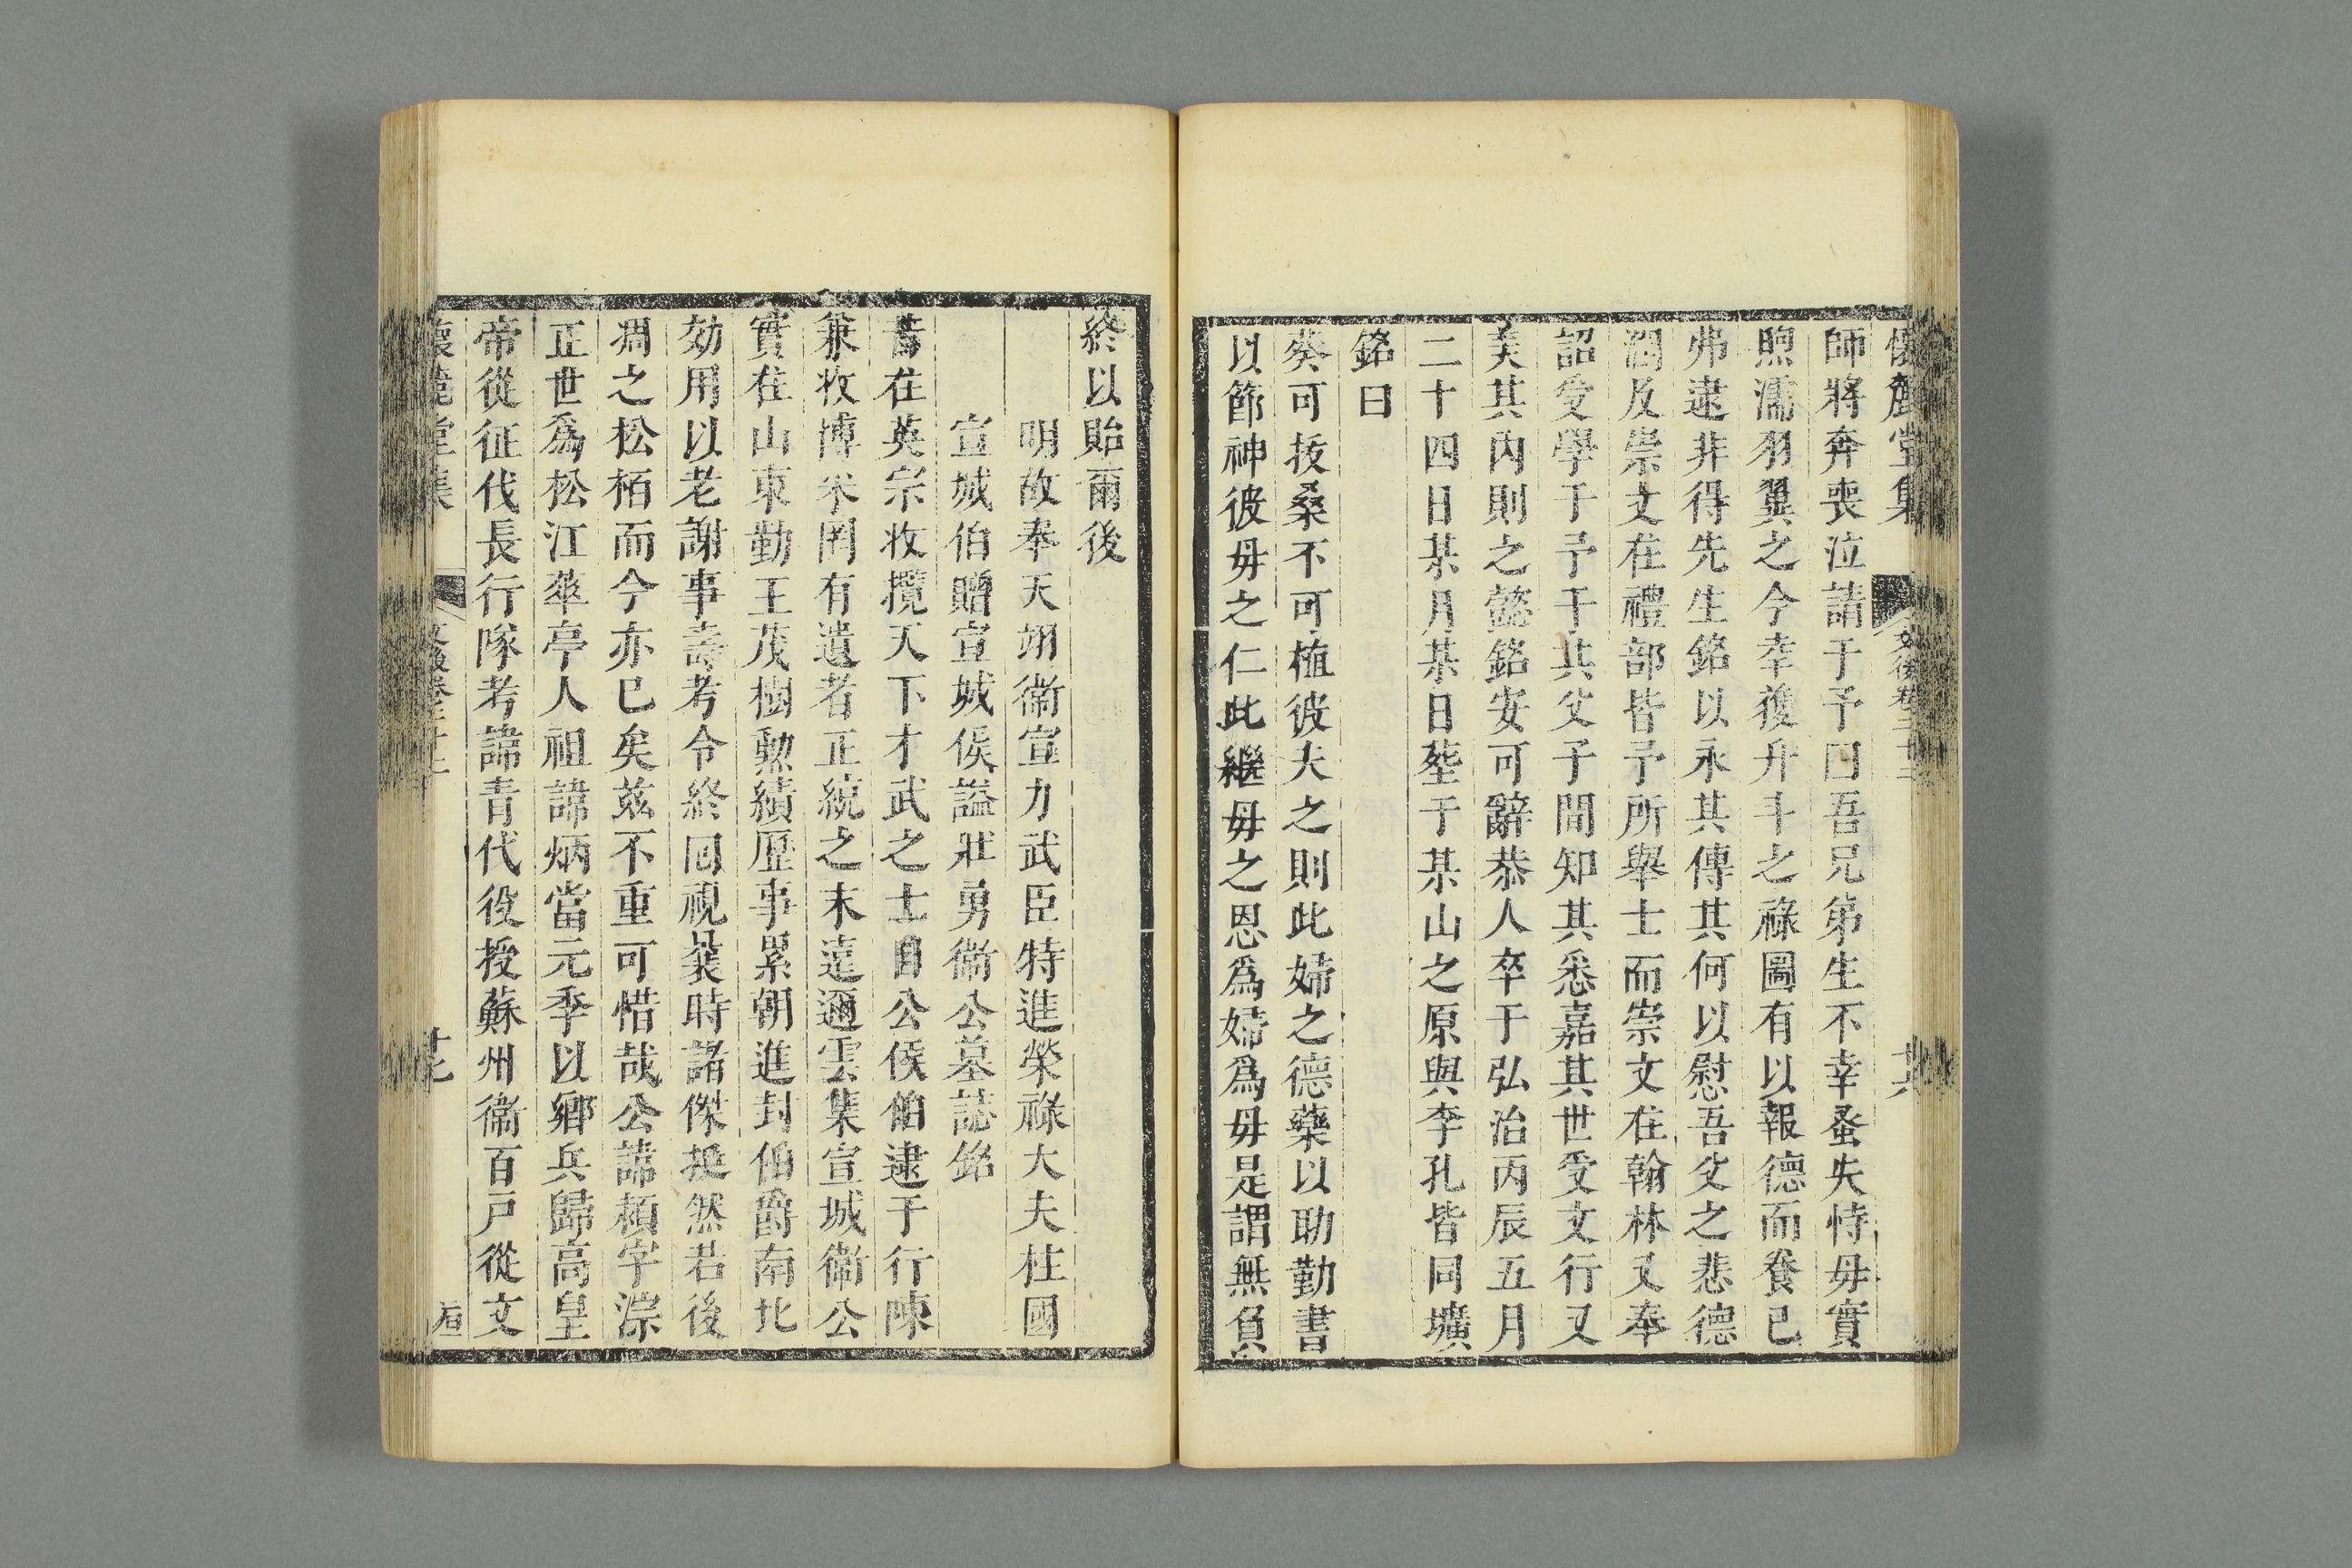 懷麓堂集 文後卷二十三
師將奔喪泣請于予曰吾兄弟生不幸蚤失恃毋實
煦濡羽翼之今幸獲升斗之祿圖有以報德而養已
弗逮非得先生銘以永其傳其何以慰吾父之悲德
潤及崇文在禮部皆予所舉士而崇文在翰林又奉
詔受學于予于其父子間知其悉嘉其世受文行又
美其内則之懿銘安可辭恭人卒于弘治丙辰五月
二十四日某月某日塟于某山之原與李孔皆同壙
銘曰
葵可拔桑不可植彼夫之則此婦之德藥以助勤書
以節神彼毋之仁此繼毋之恩爲婦爲毋是謂無負
終以貽爾後
明故奉天翊衞宣力武臣特進榮祿大夫柱國
宣城伯贈宣城侯謚壯勇衞公墓誌銘
昔在英宗收攬天下才武之士自公侯伯逮于行陳
兼收博采罔有遺者正統之末遠邇雲集宣城衞公
實在山東勤王茂樹勲績歷事累朝進封伯爵南北
効用以老謝事壽考令終回視曩時諸傑挺然若後
凋之松栢而今亦已矣兹不重可惜哉公諱頴字淙
正世爲松江華亭人祖諱炳當元季以鄉兵歸高皇
帝從征伐長行隊考諱青代役授蘇州衞百戸從文
懷麓堂集